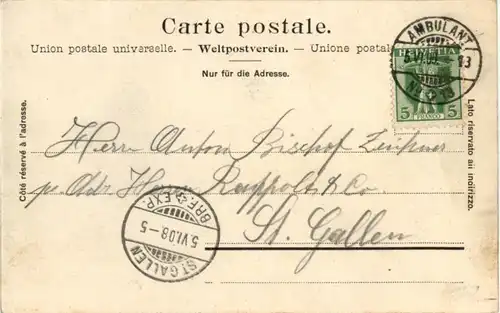 Carte postale.
Union postale universelle. — Weltpostverein. — Unione postale
Nur für die Adresse.
Côté réservé à l'adresse.
Lato riservato all indirizzo.
AMBULANT
5.VI.08. 13
No. 18
HELVETIA
5 FRANCO 5
Herrn Anton Bischof
p. Adr. Herrn & Co.
St. Gallen
BRF. EXP.
5.VI.08-5
ST. GALLEN